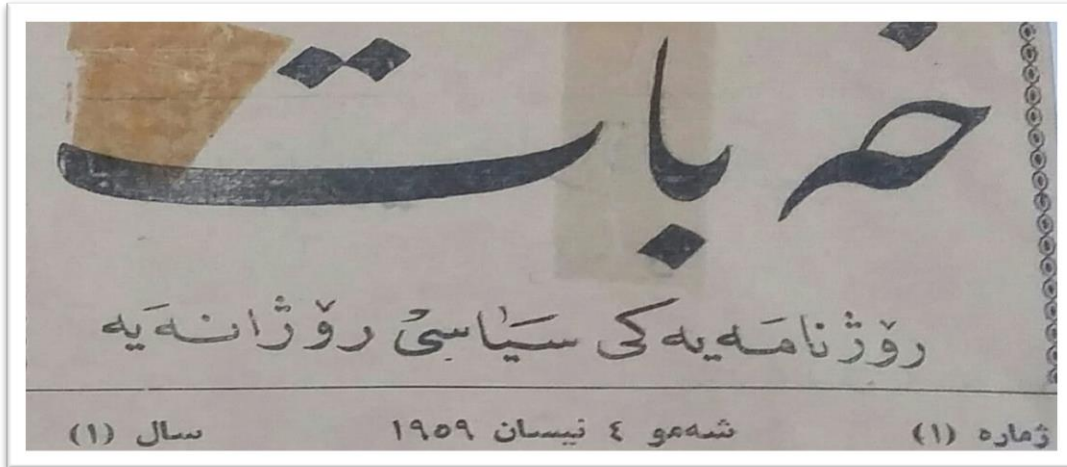 خەبات
رۆژنامەیەکی سیاسیی رۆژانەیە
ژمارە (١) شەممو ٤ نیسان ١٩٥٩ سال (١)